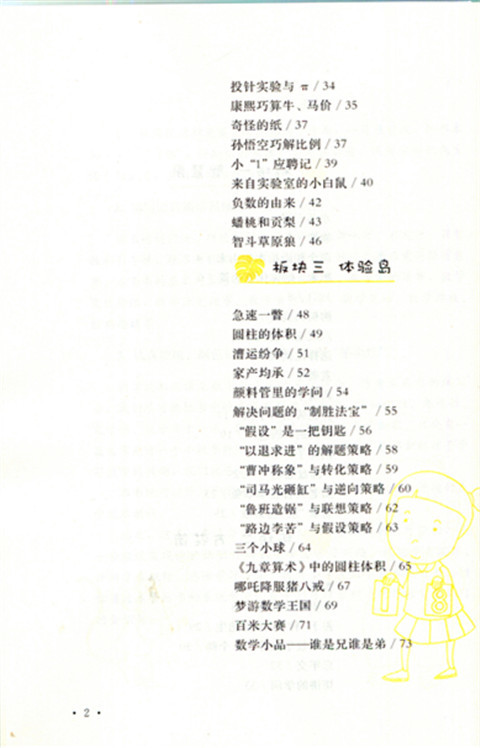 投针实验与 π / 34
康熙巧算牛、马价 / 35
奇怪的纸 / 37
孙悟空巧解比例 / 37
小“1”应聘记 / 39
来自实验室的小白鼠 / 40
负数的由来 / 42
蟠桃和贡梨 / 43
智斗草原狼 / 46
板块三 体验岛
急速一瞥 / 48
圆柱的体积 / 49
漕运纷争 / 51
家产均承 / 52
颜料管里的学问 / 54
解决问题的“制胜法宝” / 55
“假设”是一把钥匙 / 56
“以退求进”的解题策略 / 58
“曹冲称象”与转化策略 / 59
“司马光砸缸”与逆向策略 / 60
“鲁班造锯”与联想策略 / 62
“路边李苦”与假设策略 / 63
三个小球 / 64
《九章算术》中的圆柱体积 / 65
哪吒降服猪八戒 / 67
梦游数学王国 / 69
百米大赛 / 71
数学小品——谁是兄谁是弟 / 73
1 8
· 2 ·